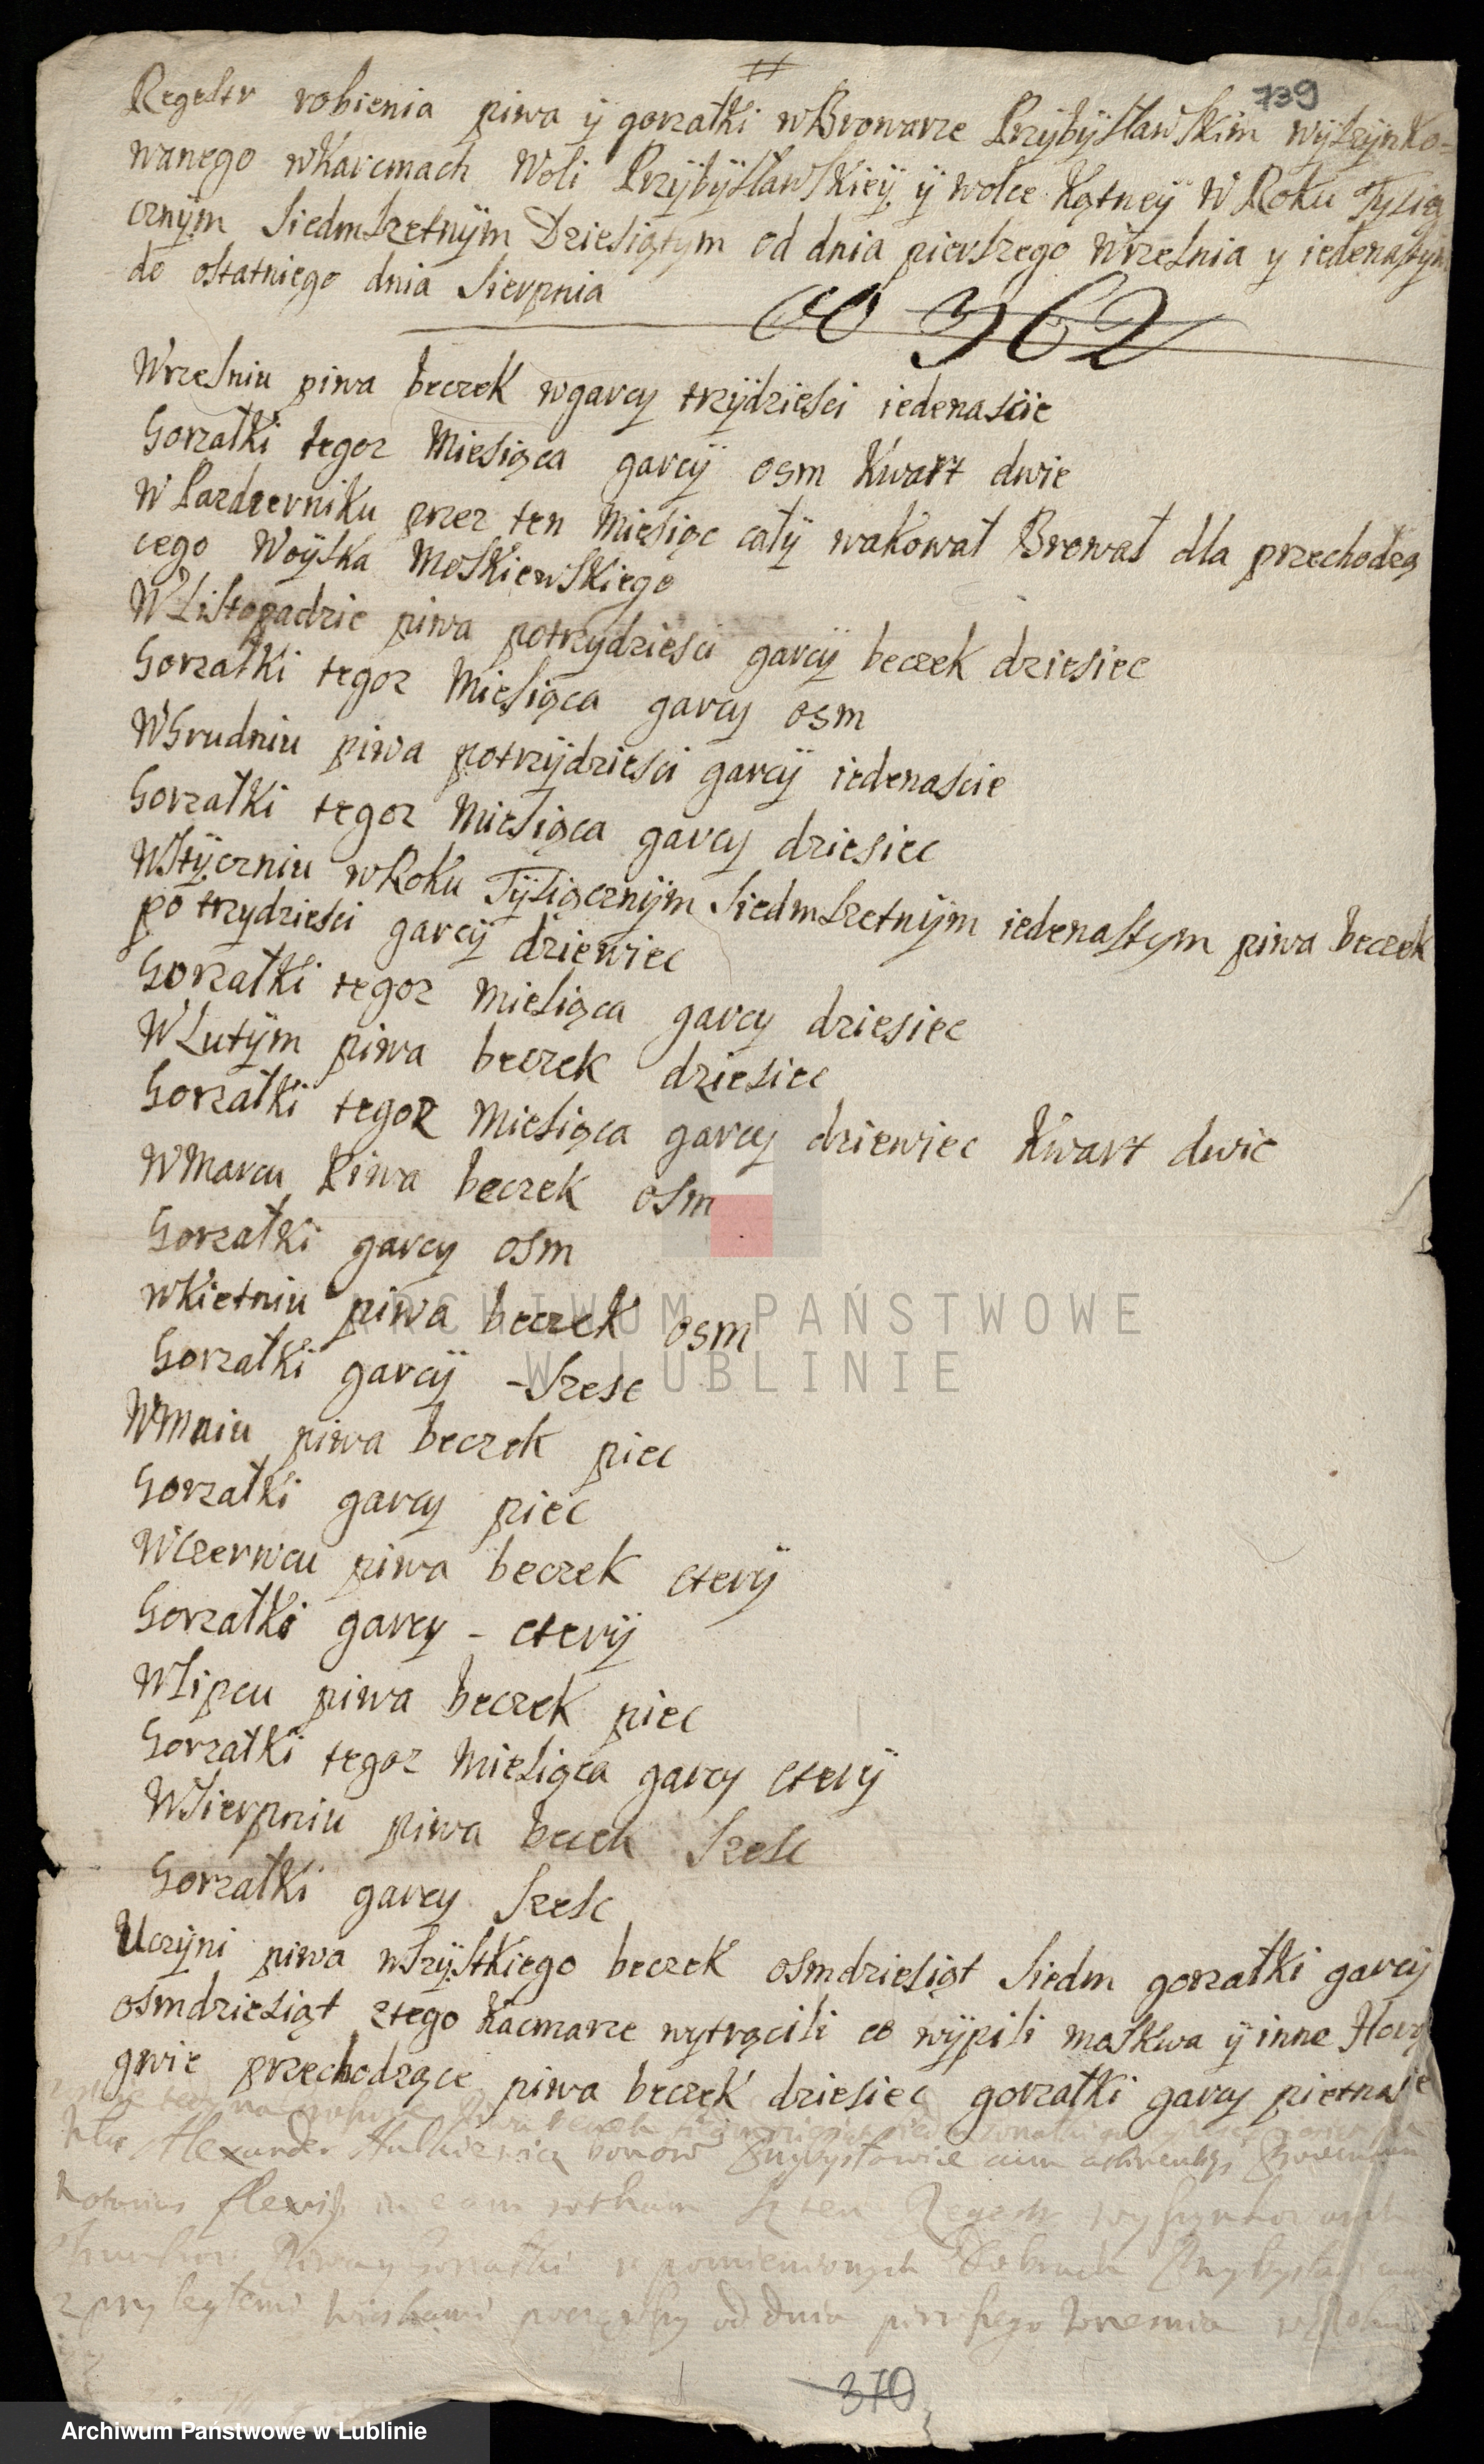 739
Regestr robienia piwa ÿ gorzałki wBrowarze PrzÿbÿsławSkim wÿszÿnko-
wanego wKarcmach Woli PrzÿbÿsławSkieÿ ÿ wolce Kątneÿ W Roku Tysią
cznÿm Siedmszetnÿm Dziesiątÿm od dnia pierszego Wrzesnia y iedenastÿm
do ostatniego dnia Sierpnia
362
Wrzesniu piwa beczek wgarcy trzÿdziesci iedenascie
Gorzałki tegoz Miesiąca garcÿ osm Kwart dwie
W Pazdzerniku przez ten Miesiąc całÿ wakował Brował dla przechodzą
cego WoÿSka MoSKiewSKiego
WListopadzie piwa potrzydziesci garcÿ beczek dziesiec
Gorzałki tegoz Miesiąca garcy osm
WGrudniu piwa potrzÿdziesci garcÿ iedenascie
Gorzałki tegoz Miesiąca garcy dziesiec
WStÿczniu wRoku Tÿsiącznÿm Siedmszetnÿm iedenastym piwa beczek
po trzydziesci garcÿ dziewiec
Gorzałki tegoz Miesiąca garcy dziesiec
WLutÿm piwa beczek dziesiec
Gorzałki tegoz Miesiąca garcy dziewiec Kwart dwie
WMarcu Piwa beczek osm
Gorzałki garcy osm
wKietniu piwa beczek osm
Gorzałki garcÿ - Szesc
WMaiu piwa beczek piec
Gorzałki garcy piec
WCzerwcu piwa beczek cterÿ
Gorzałki garcy - cterÿ
WLipcu piwa beczek piec
Gorzałki tegoz Miesiąca garcy cterÿ
WSierpniu piwa becek Szesc
Gorzałki garcy Szesc
Uczÿni piwa wszÿstkiego beczek osmdziesiąt Siedm gorzałki garcÿ
osmdziesiąt ztego Kacmarze wytrącili co wÿpili maskwa ÿ inne Horą
gwie przechodzące piwa beczek dziesiec gorzałki garcy pietnascie
Alexander
Regestr
Piwa y Gorzałki w pomienionych Dobrach
z przyległemi wioskami począwszy od dnia pierszego
370
ARCHIWUM PAŃSTWOWE
W LUBLINIE
Archiwum Państwowe w Lublinie